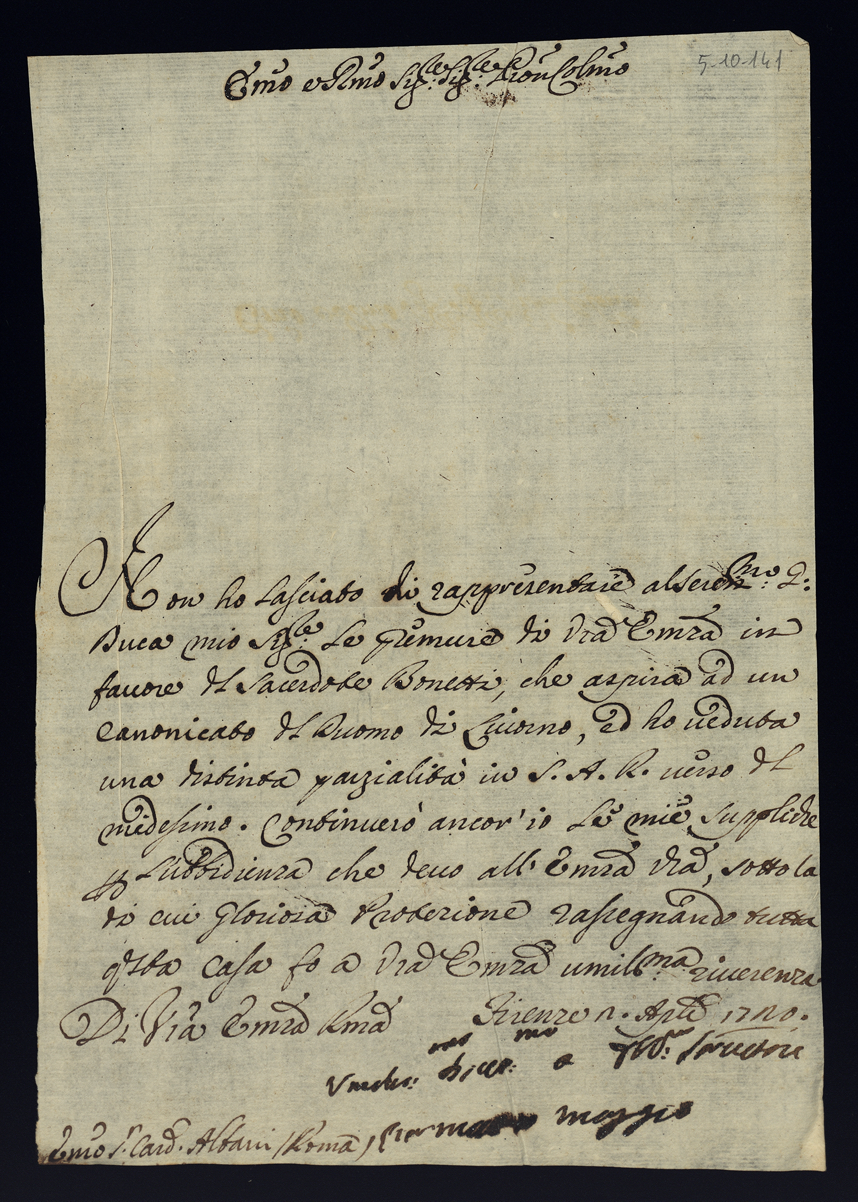 5-10-141
Emo e Rmo Sigre Sigre Pron Colmo
Non ho lasciato di rappresentare al Seren.mo G:
Duca mio Sigre le premure di Vra Emza in
favore del Sacerdote Bonetti, che aspira ad un
Canonicato del Duomo di Livorno, ed ho veduta
una distinta parzialità in S. A. R. verso del
medesimo. Continuerò ancor' io le mie suppliche
p l'ubbidienza che devo all' Emza Vra, sotto la
di cui Gloriosa Protezione rassegnando tutta
qsta Casa fo a Vra Emza umil.ma riverenza
Di Vra Emza Rma
Firenze Aple
Servitore
Emo Sr. Card. Albani / Roma /
maggio